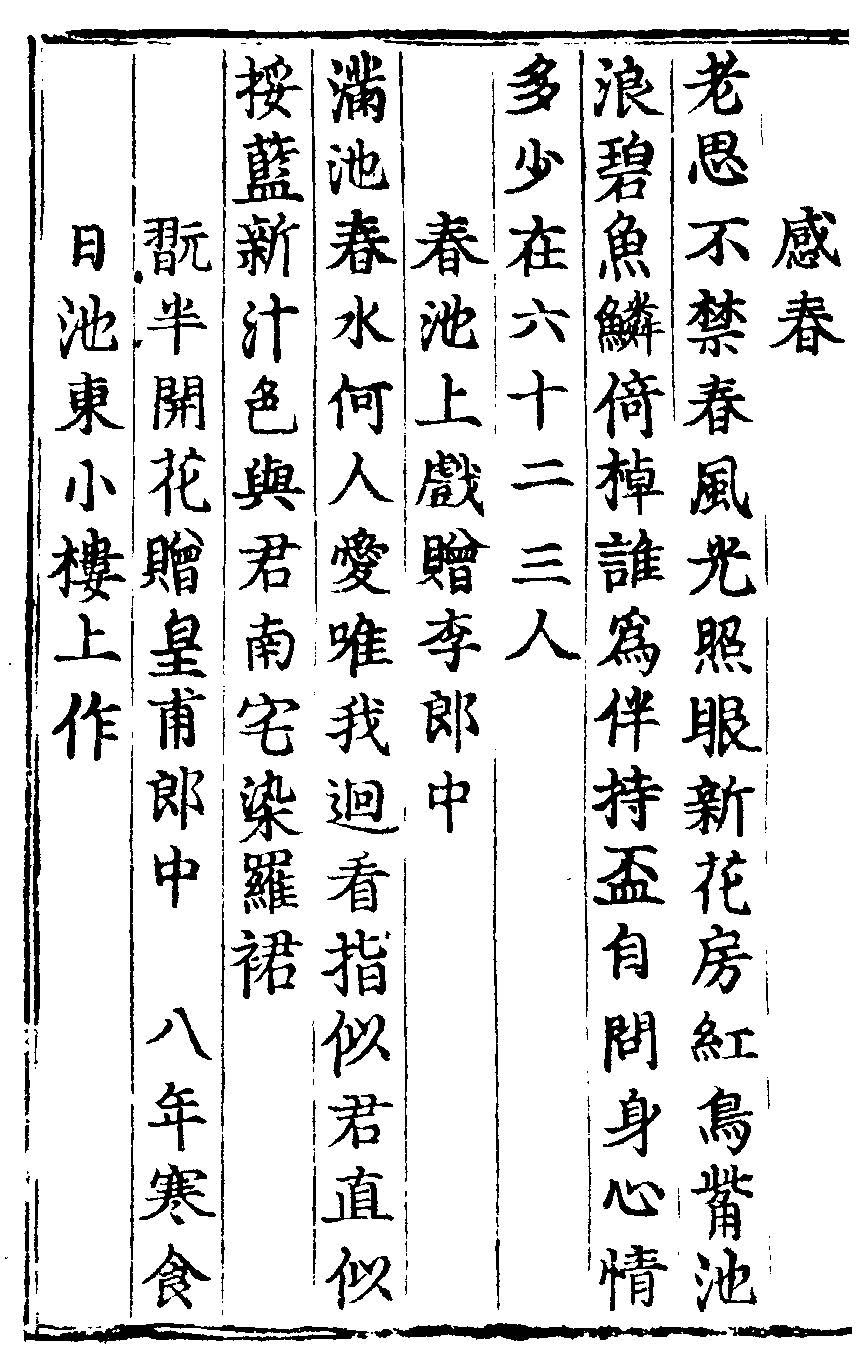 感春
老思不禁春風光照眼新花房紅鳥觜池
浪碧魚鱗倚棹誰爲伴持盃自問身心情
多少在六十二三人
春池上戲贈李郎中
滿池春水何人愛唯我迴看指似君直似
挼藍新汁色與君南宅染羅裙
翫半開花贈皇甫郎中　八年寒食
日池東小樓上作